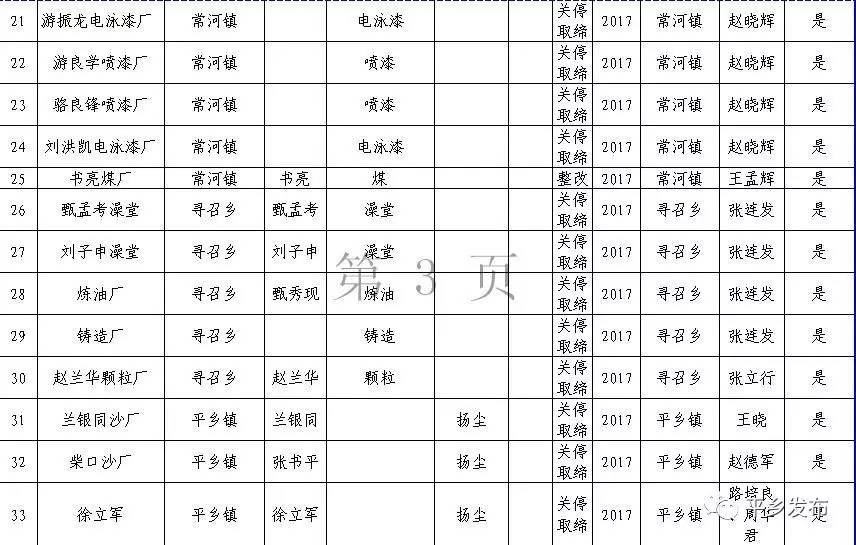 21 游振龙电泳漆厂 常河镇 电泳漆 关停取缔 2017 常河镇 赵晓辉 是
22 游良学喷漆厂 常河镇 喷漆 关停取缔 2017 常河镇 赵晓辉 是
23 骆良锋喷漆厂 常河镇 喷漆 关停取缔 2017 常河镇 赵晓辉 是
24 刘洪凯电泳漆厂 常河镇 电泳漆 关停取缔 2017 常河镇 赵晓辉 是
25 书亮煤厂 常河镇 书亮 煤 整改 2017 常河镇 王孟辉 是
26 甄孟考澡堂 寻召乡 甄孟考 澡堂 关停取缔 2017 寻召乡 张连发 是
27 刘子申澡堂 寻召乡 刘子申 澡堂 关停取缔 2017 寻召乡 张连发 是
第 3 页
28 炼油厂 寻召乡 甄秀现 炼油 关停取缔 2017 寻召乡 张连发 是
29 铸造厂 寻召乡 铸造 关停取缔 2017 寻召乡 张连发 是
30 赵兰华颗粒厂 寻召乡 赵兰华 颗粒 关停取缔 2017 寻召乡 张立行 是
31 兰银同沙厂 平乡镇 兰银同 扬尘 关停取缔 2017 平乡镇 王晓 是
32 柴口沙厂 平乡镇 张书平 扬尘 关停取缔 2017 平乡镇 赵德军 是
33 徐立军 平乡镇 徐立军 扬尘 关停取缔 2017 平乡镇 路培良、周华君 是
平乡发布